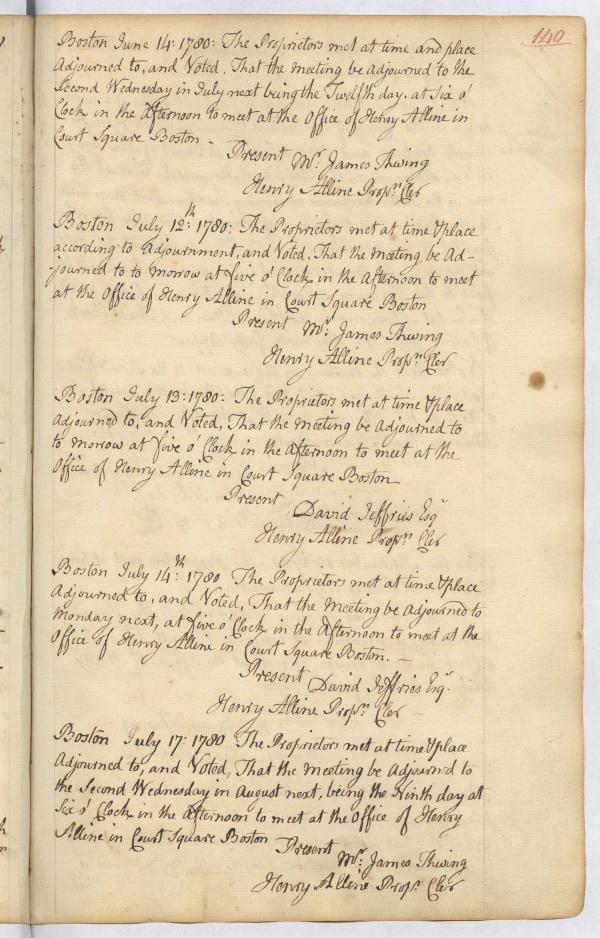 140
Boston June 14: 1780: The Proprietors met at time and place
Adjourned to, and Voted, That the meeting be adjourned to the
Second Wednesday in July next being the Twelfth day, at Six o'
Clock in the Afternoon to meet at the Office of Henry Alline in
Court Square Boston -
Present Mr. James Thwing
Henry Alline Propr. Cler
Boston July 12th: 1780: The Proprietors met at time & place
according to Adjournment, and Voted, That the meeting be Ad-
-journed to to morrow at five o' Clock in the Afternoon to meet
at the Office of Henry Alline in Court Square Boston
Present Mr. James Thwing
Henry Alline Propr. Cler
Boston July 13: 1780: The Proprietors met at time & place
Adjourned to, and Voted, That the meeting be Adjourned to
to morrow at five o' Clock in the Afternoon to meet at the
Office of Henry Alline in Court Square Boston
Present
David Jeffries Esqr
Henry Alline Propr. Cler
Boston July 14th: 1780 The Proprietors met at time & place
Adjourned to, and Voted, That the Meeting be Adjourned to
Monday next, at five o' Clock in the Afternoon to meet at the
Office of Henry Alline in Court Square Boston. -
Present David Jeffries Esqr.
Henry Alline Propr. Cler -
Boston July 17: 1780 The Proprietors met at time & place
Adjourned to, and Voted, That the meeting be Adjourned to
the Second Wednesday in August next, being the Ninth day at
Six o' Clock in the Afternoon to meet at the Office of Henry
Alline in Court Square Boston
Present
Mr. James Thwing
Henry Alline Propr. Cler